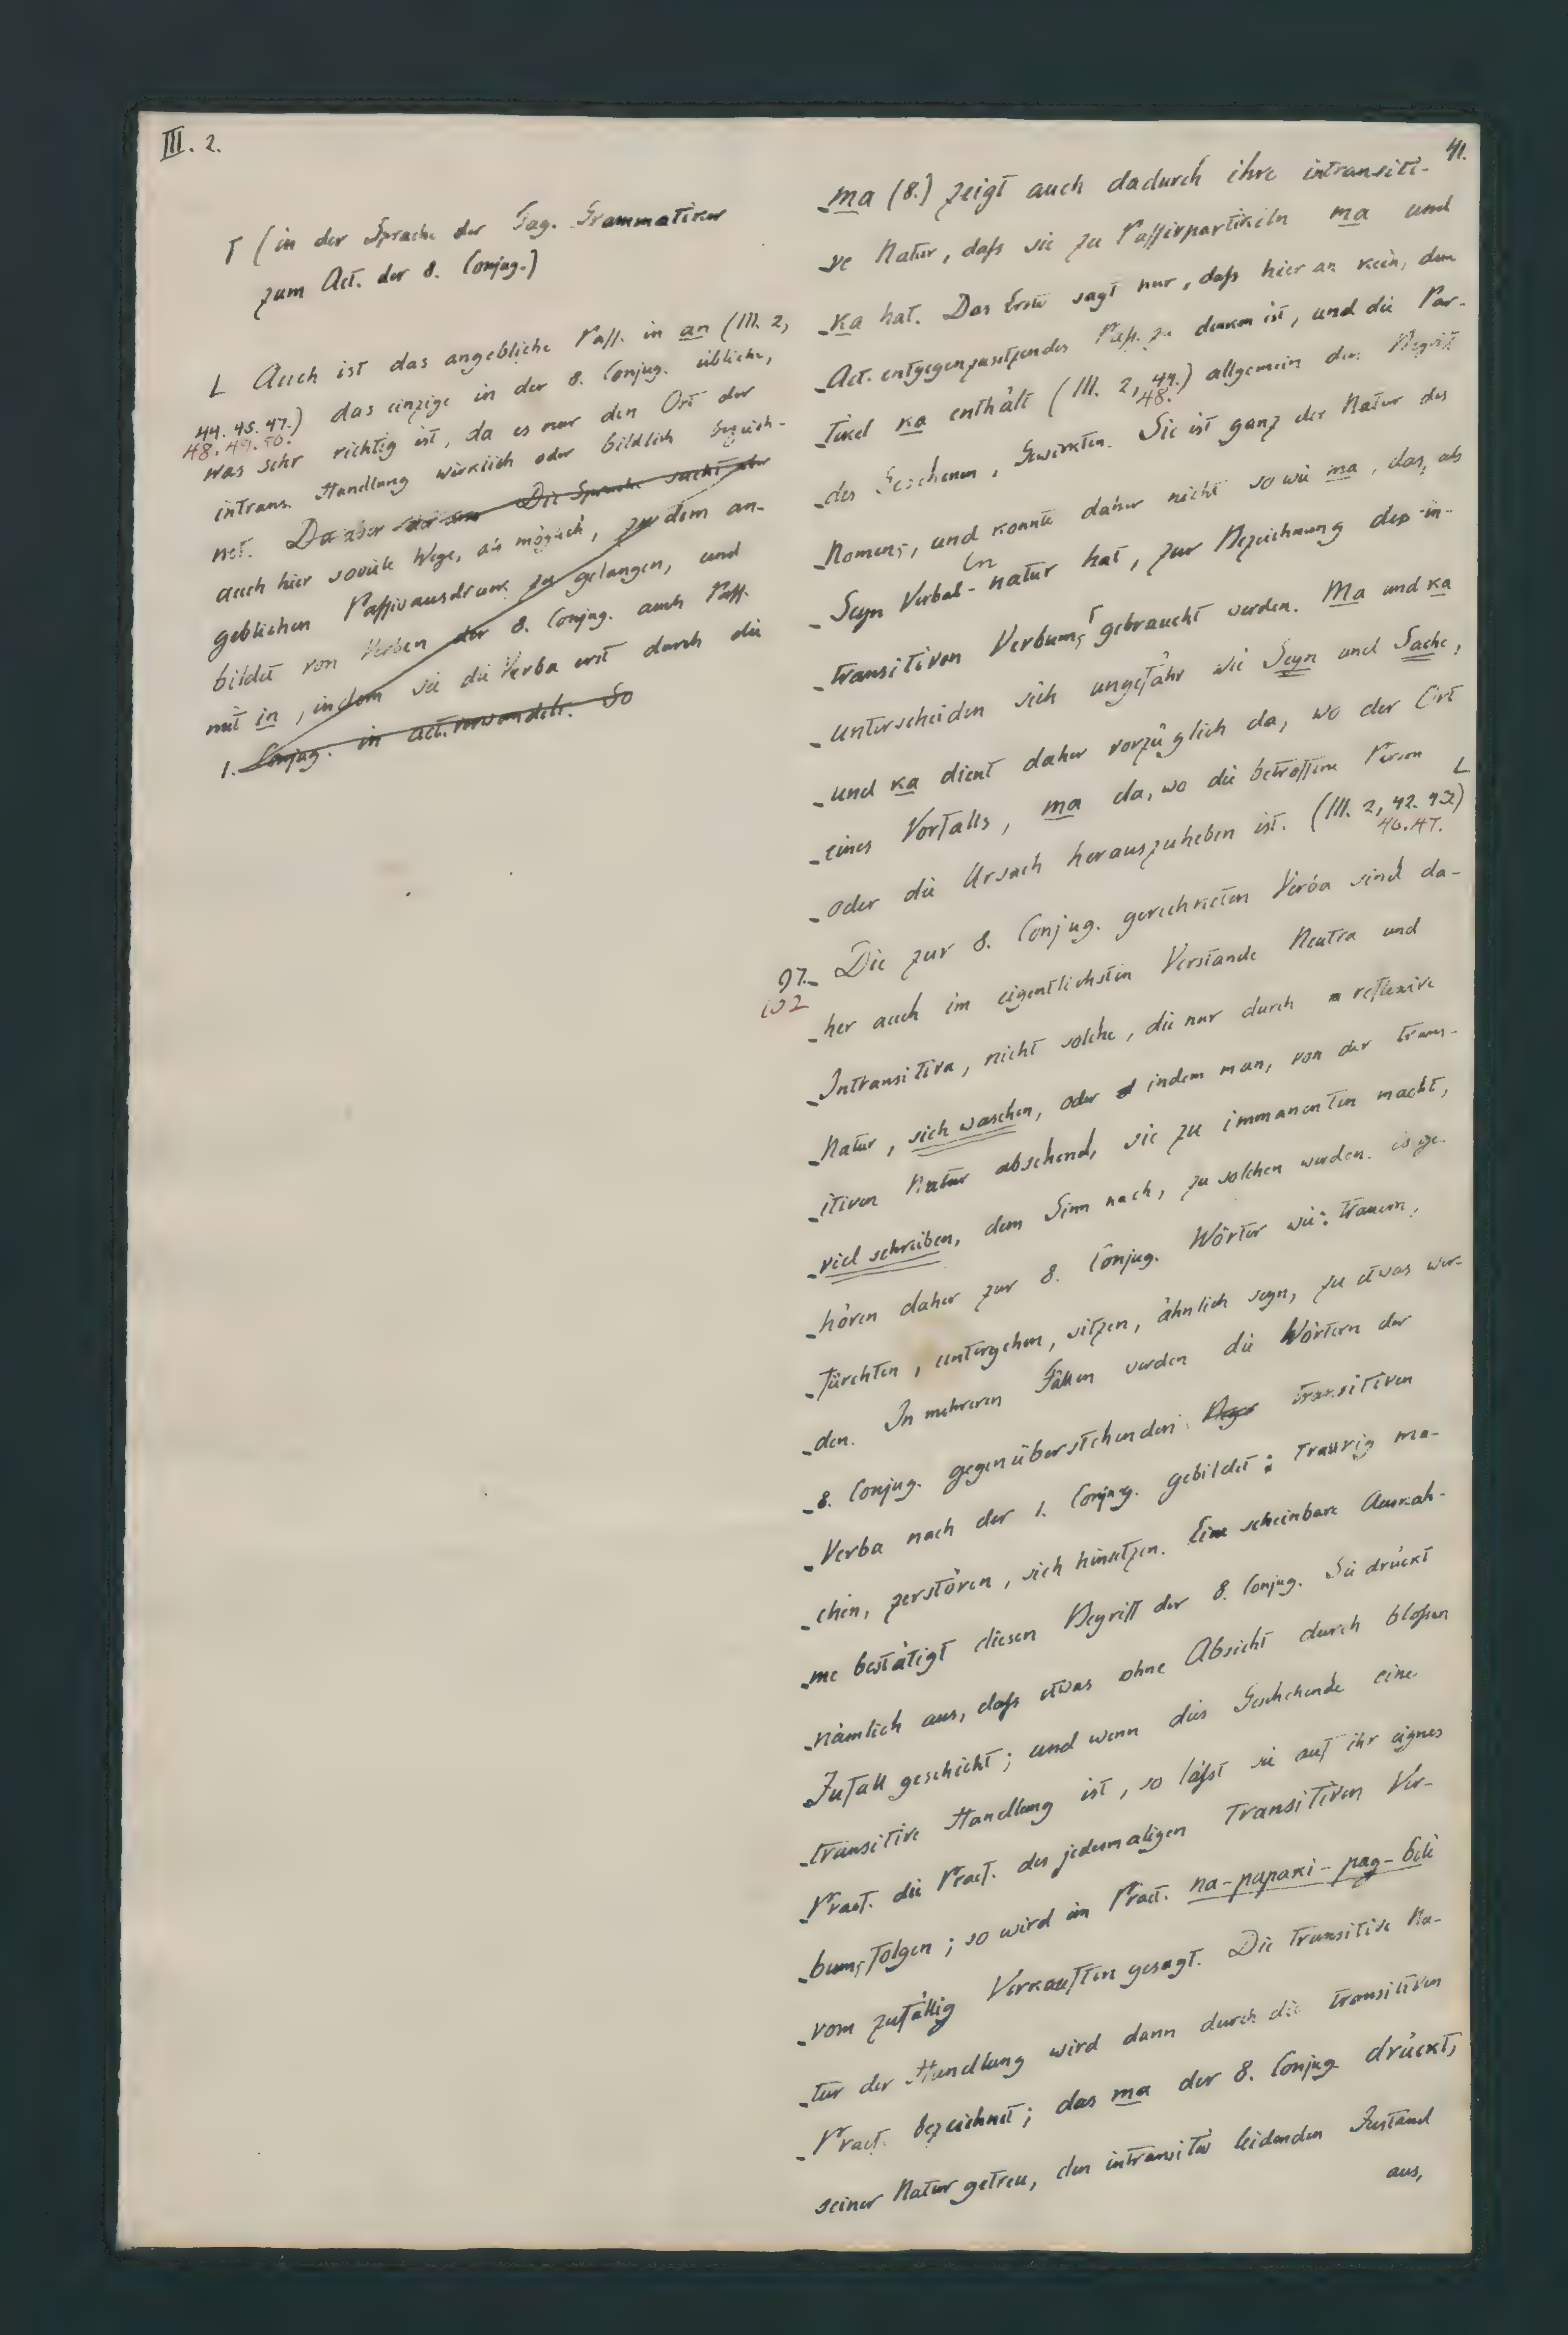 III. 2.
41.
Γ (in der Sprache der Tag. Grammatiker
zum Act. der 8. Conjug.)
L Auch ist das angebliche Pass. in an (III. 2,
44. 45. 47.) das einzige in der 8. Conjug. übliche,
48. 49. 50.
was sehr richtig ist, da es nur den Ort der
intrans. Handlung wirklich oder bildlich bezeich-
net. Da aber Die Sprache sucht aber
auch hier soviele Wege, als möglich, zu dem an-
geblichen Passivausdruck zu gelangen, und
bildet von Verben der 8. Conjug. auch Pass.
mit in, indem sie die Verba erst durch die
1. Conjug. in act. verwandelt. So
ma (8.) zeigt auch dadurch ihre intransiti-
ve Natur, daß sie zu Passivpartikeln ma und
ka hat. Das Erste sagt nur, daß hier an kein, dem
Act. entgegenzusetzendes Pass. zu denken ist, und die Par-
tikel ka enthält (III. 2, 44.) allgemein den Begriff
48.
des Geschehenen, Gewirkten. Sie ist ganz der Natur des
Nomens, und konnte daher nicht so wie ma, das, als
Seyn Verbal-natur hat, zur Bezeichnung des in-
transitiven Verbums Γ gebraucht werden. Ma und ka
unterscheiden sich ungefähr wie Seyn und Sache,
und ka dient daher vorzüglich da, wo der Ort
eines Vorfalls, ma da, wo die betroffene Person L
oder die Ursach herauszuheben ist. (III. 2, 42. 43)
46. 47.
97. Die zur 8. Conjug. gerechneten Verba sind da-
102
her auch im eigentlichsten Verstande Neutra und
Intransitiva, nicht solche, die nur durch reflexive
Natur, sich waschen, oder indem man, von der trans-
itiven Natur absehend, sie zu immanenten macht,
viel schreiben, dem Sinn nach, zu solchen werden. Es ge-
hören daher zur 8. Conjug. Wörter wie: trauern,
fürchten, untergehen, sitzen, ähnlich seyn, zu etwas wer-
den. In mehreren Fällen werden die Wörtern der
8. Conjug. gegenüberstehenden transitiven
Verba nach der 1. Conjug. gebildet: traurig ma-
chen, zerstören, sich hinsetzen. Eine scheinbare Ausnah-
me bestätigt diesen Begriff der 8. Conjug. Sie drückt
nämlich aus, daß etwas ohne Absicht durch bloßen
Zufall geschieht; und wenn dies Geschehende eine
transitive Handlung ist, so läßt sie auf ihr eignes
Praef. die Praef. des jedesmaligen transitiven Ver-
bums folgen; so wird im Praet. na-papaki-pag-bili
vom zufällig Verkauften gesagt. Die transitive Na-
tur der Handlung wird dann durch die transitiven
Praef. bezeichnet; das ma der 8. Conjug. drückt,
seiner Natur getreu, den intransitiv leidenden Zustand
aus,